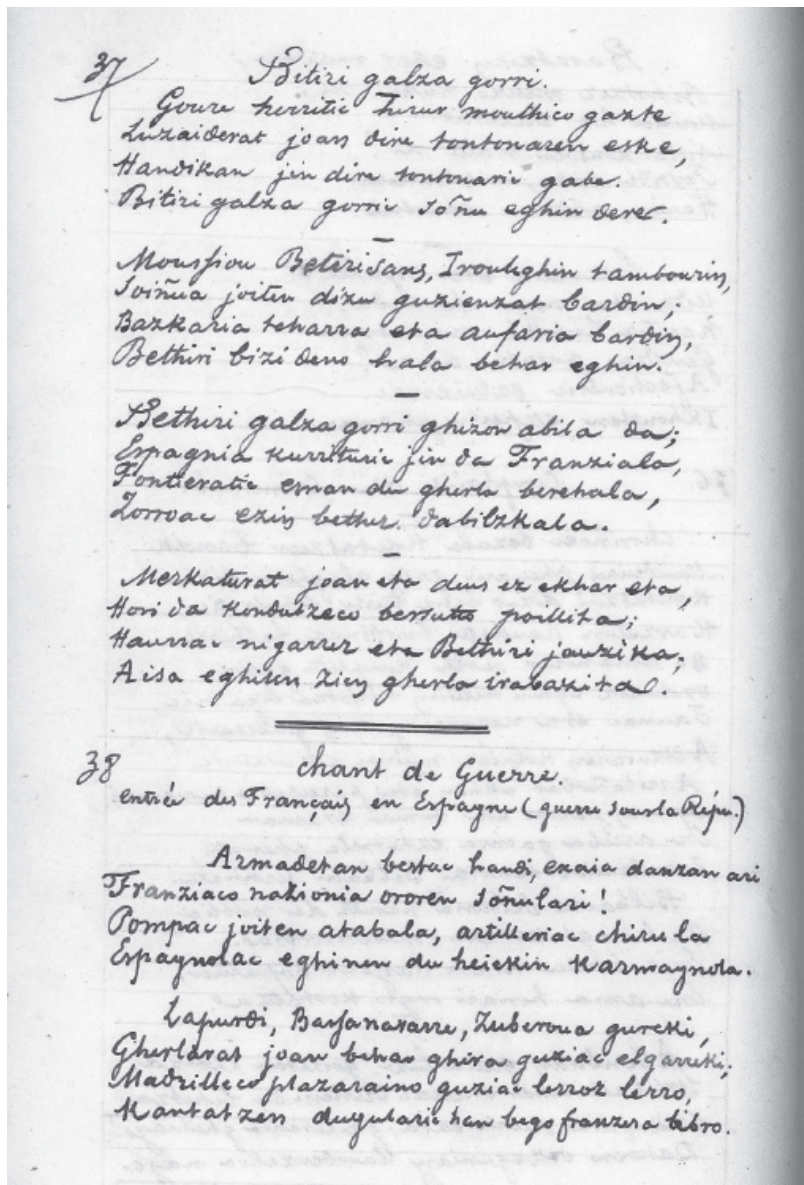 37
Bitiri galza gorri.
Goure herritic hirur mouthico gazte
Luzaiderat joan dire tontonaren eske,
Handikan jin dire tontonaric gabe.
Bitiri galza gorric soñu eghin dere.
Moussiou Betirisans, Irouleghin tambourin,
Soiñua joiten dizu guzienzat bardin;
Bazkaria teharra eta aufaria bardin,
Bethiri bizi deno hala behar eghin.
Bethiri galza gorri ghizon abila da;
Espagnia kurrituric jin da Franziala,
Pontieratic eman du gherla berehala,
Zorroac ezin bethez dabilzkala.
Merkaturat joan eta deus ez ekhar eta,
Hori da kondutzeco bersutto pollita;
Haurrac nigarrez eta Bethiri jauzika;
Aisa eghiten zien gherla irabazita.
38
chant de Guerre.
entrée des Français en Espagne (guerre sous la Répu.)
Armadetan bestac handi, exaia danzan ari
Franziaco nazionia ororen soñulari!
Pompac joiten atabala, artilleriac chirula
Espagnolac eghinen du heiekin Karmagnola.
Lapurdi, Bassanavarre, Zuberoua gureki,
Gherlarat joan behar ghira guziac elgarreki;
Madrilleco plazaraino guziac lerroz lerro,
Kantatzen dugularic han bego franzesa libro.